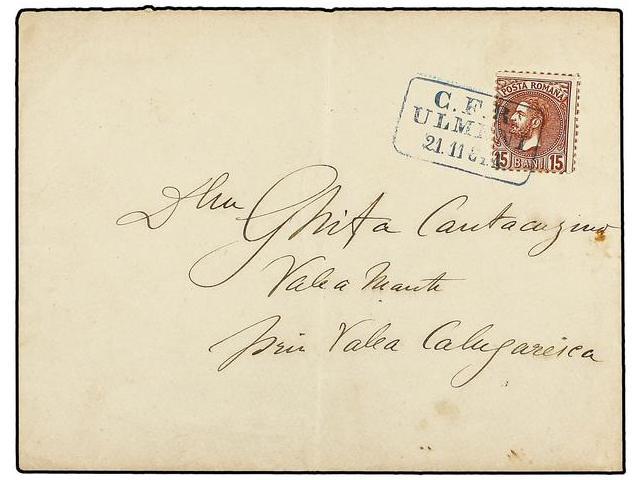 C. F. R.
ULMENI
21. 11 81
POSTA ROMANA
15 BANI 15
Dlui Ghita Cantacuzino
Valea Mante
prin Valea Calugaresca